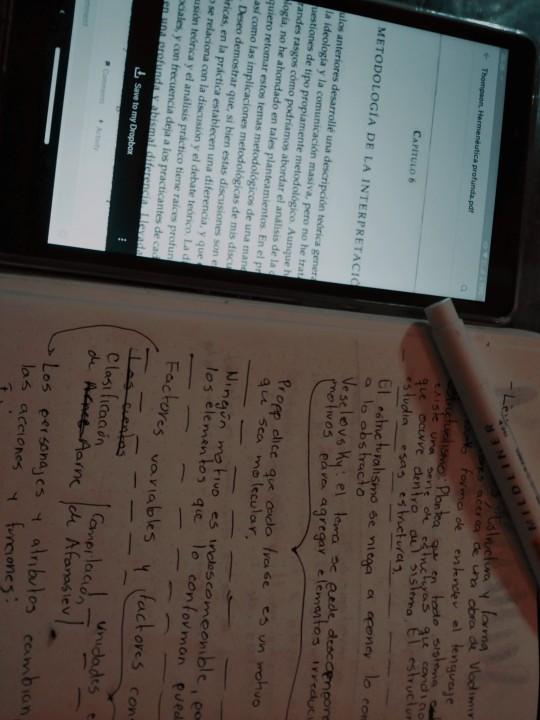 Thompson, Hermenéutica profunda.pdf
CAPÍTULO 6
METODOLOGÍA DE LA INTERPRETACIÓ
ulos anteriores desarrollé una descripción teórica genera
la ideología y la comunicación masiva, pero no he trat
uestiones de tipo propiamente metodológico. Aunque h
randes rasgos cómo podríamos abordar el análisis de la
logía, no he ahondado en tales planteamientos. En el pr
quiero retomar estos temas metodológicos de una mane
así como las implicaciones metodológicas de mis discu
Deseo demostrar que, si bien estas discusiones son e
óricas, en la práctica establecen una diferencia, y que
o se relaciona con la discusión y el debate teórico. La d
usión teórica y el análisis práctico tiene raíces profun
ociales, y con frecuencia deja a los practicantes de cad
en una profunda y abismal diferencia. Llevada
Save to my Dropbox
Comments
Activity
estructura y forma
acerca de una obra de Vladimi
forma de entender el lenguaje
Estructuralismo: Plantea que en todo sistema
existe una serie de estructuras que condicio
que ocurre dentro del sistema, El estructur
estudia esas estructuras
El estructuralismo se niega a oponer lo con
a lo abstracto
Veselovsky: el tema se puede descompone
motivos para agregar elementos irreduci
Propp dice que cada frase es un motivo
que sea molecular.
Ningún motivo es indescomponible, pa
los elementos que lo conforman pued
Factores variables y factores con
Los cuentos
Clasificación
de Aarne / Compilación / unidades e
de Afanasiev /
Los personajes y atributos cambian
las acciones y funciones:
MILDLINER